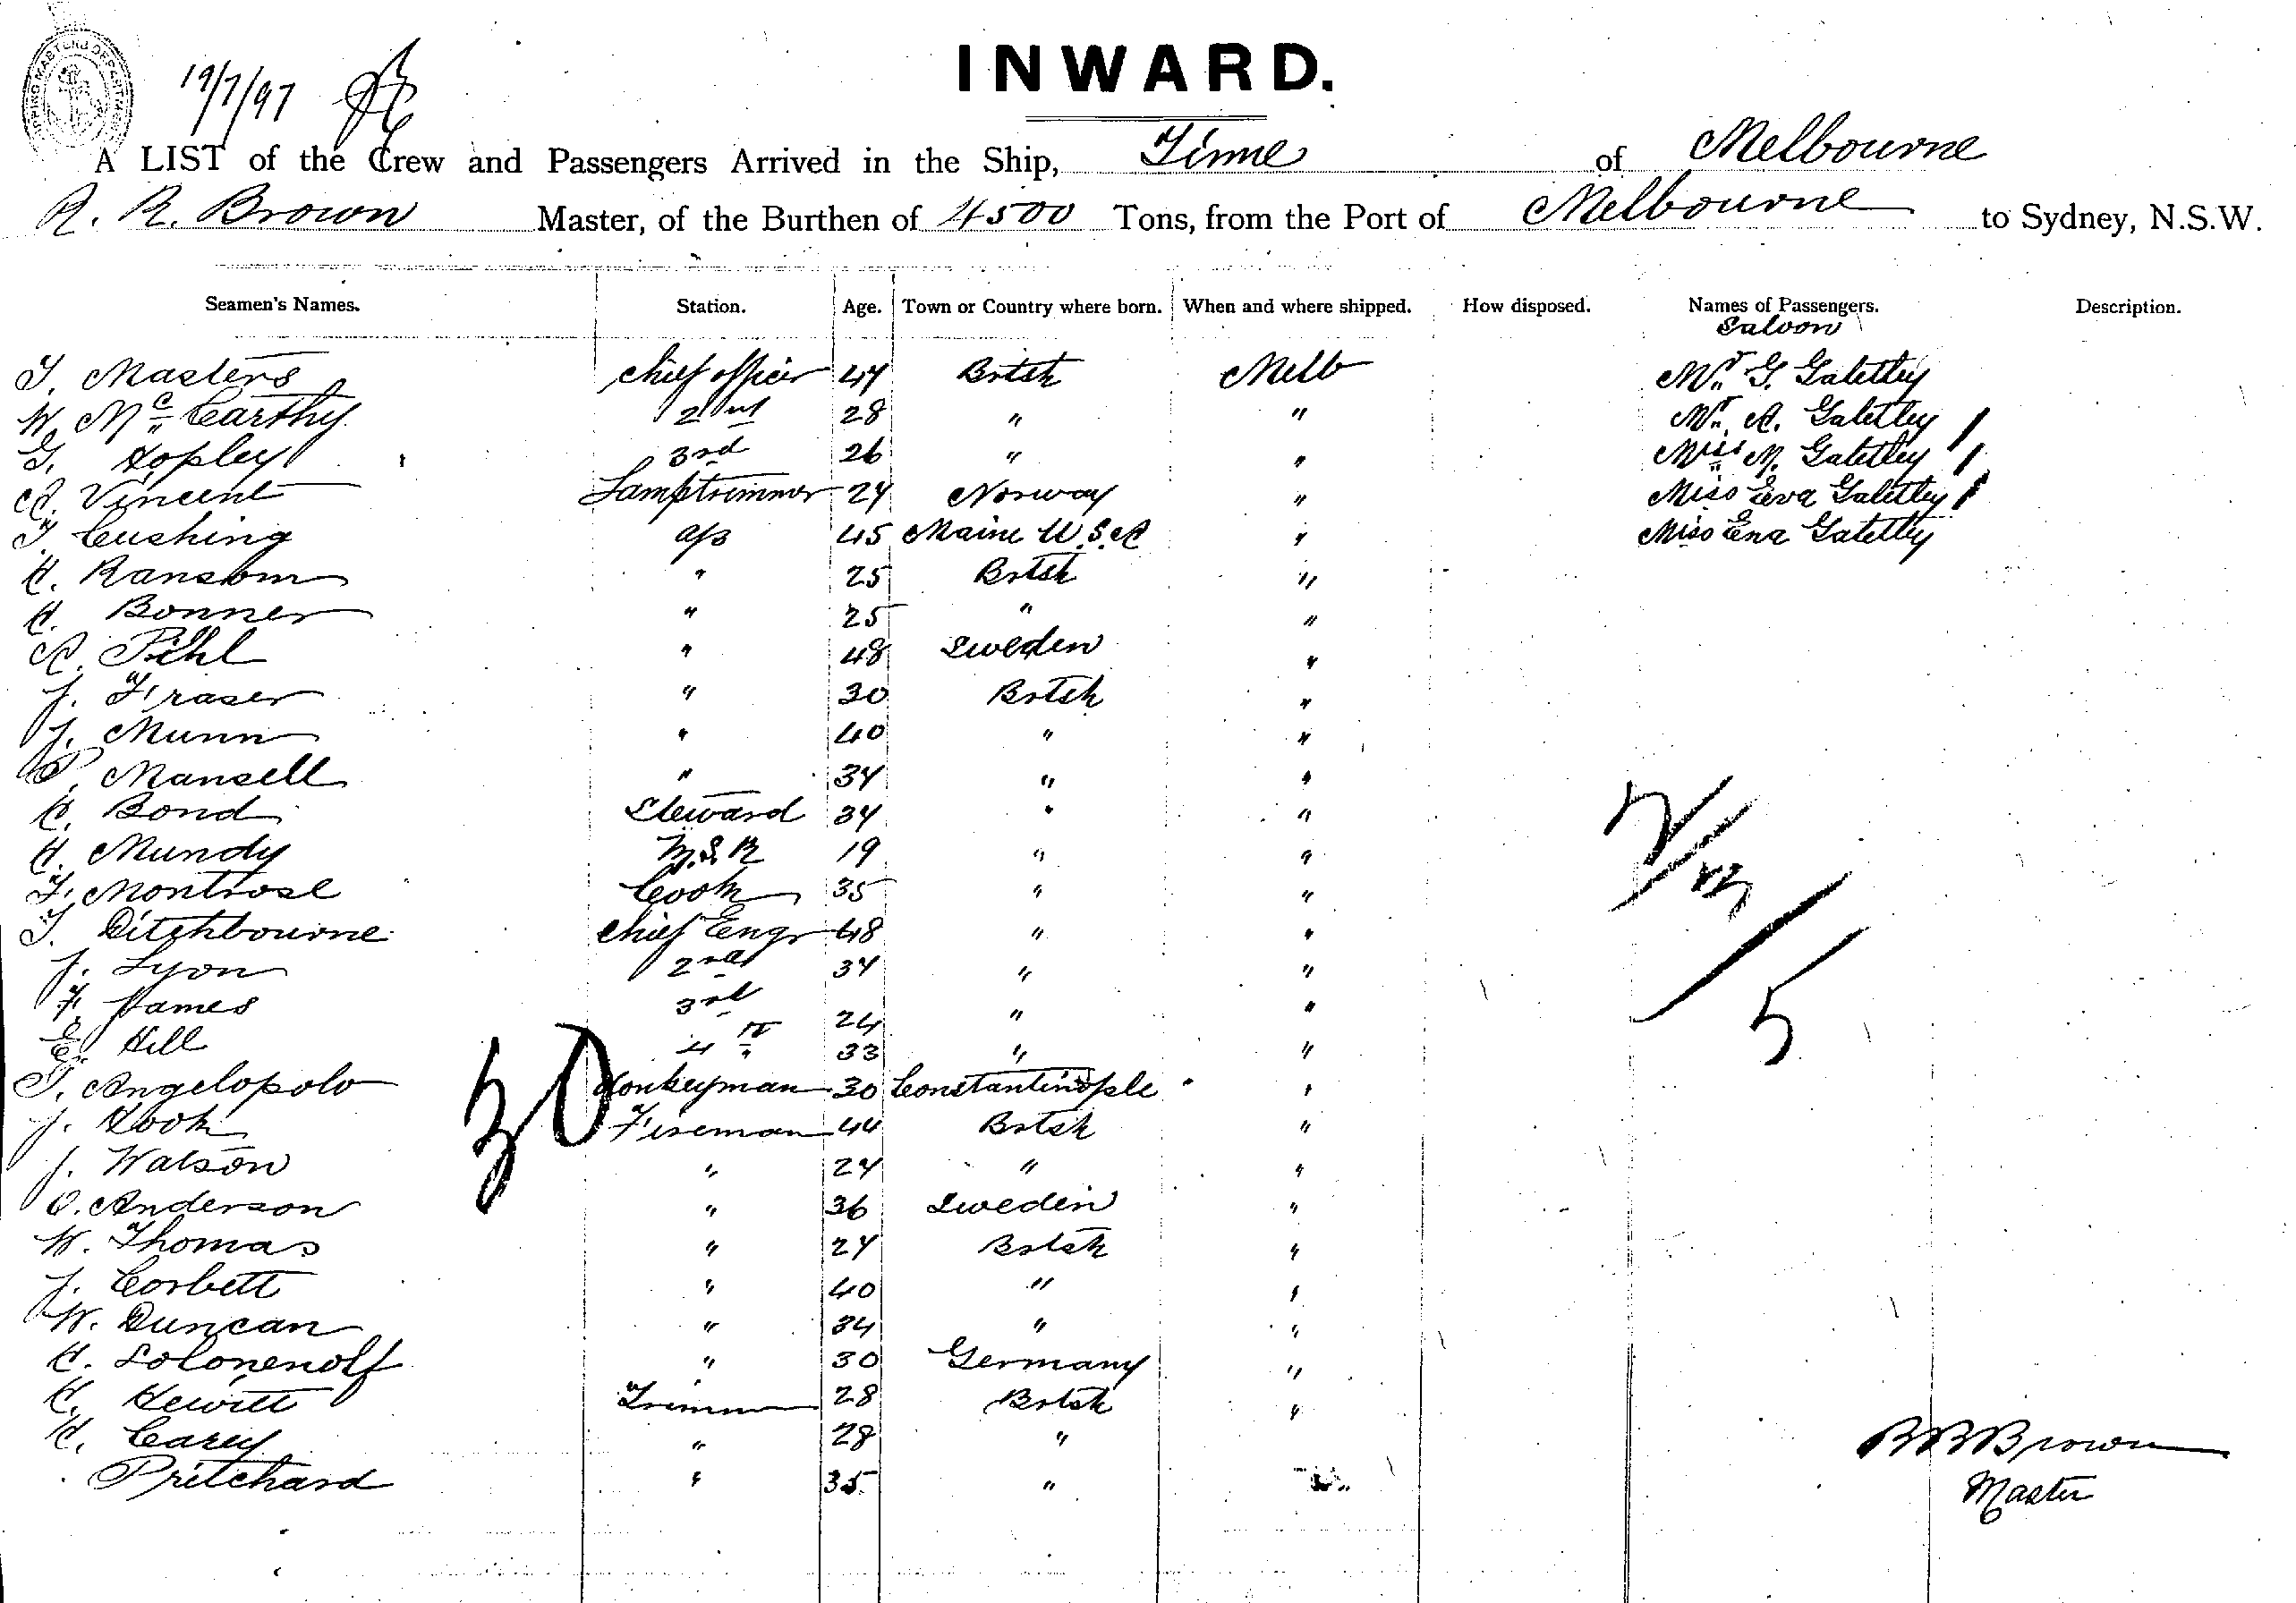 19/7/97
INWARD.
A LIST of the Crew and Passengers Arrived in the Ship, Tinne of Melbourne
R. R. Brown Master, of the Burthen of 4500 Tons, from the Port of Melbourne to Sydney, N.S.W.
Seamen's Names. Station. Age. Town or Country where born. When and where shipped. How disposed. Names of Passengers. Description.
Saloon
T. Masters Chief officer 47 Brtsh Melb Mr. G. Galetley
W. McCarthy 2nd 28 " " Mr. A. Galetley
G. Hopley 3rd 26 " " Miss M. Galetley
A. Vincent Lamptrimmer 24 Norway " Miss Eva Galetley
T. Cushing a/s 45 Maine U.S.A " Miss Ena Galetley
H. Ransom " 25 Brtsh "
H. Bonner " 25 " "
A. Pihl " 48 Sweden "
J. Fraser " 30 Brtsh "
J. Munn " 40 " "
P. Mansell " 34 " "
C. Bond Steward 34 " "
H. Mundy M.S.R 19 " "
F. Montrose Cook 35 " "
T. Ditchbourne Chief Engr 48 " "
J. Lyon 2nd 34 " "
F. James 3rd 24 " "
E. Hill 4th 33 " "
T. Angelopolo Donkeyman 30 Constantinople "
J. Hook Fireman 44 Brtsh "
J. Watson " 24 " "
O. Anderson " 36 Sweden "
W. Thomas " 24 Brtsh "
J. Corbett " 40 " "
W. Duncan " 34 " "
H. " 30 Germany "
H. Hewitt Trimmer 28 Brtsh "
H. Carey " 28 " "
Pritchard " 35 " "
30
5
RR Brown
Master